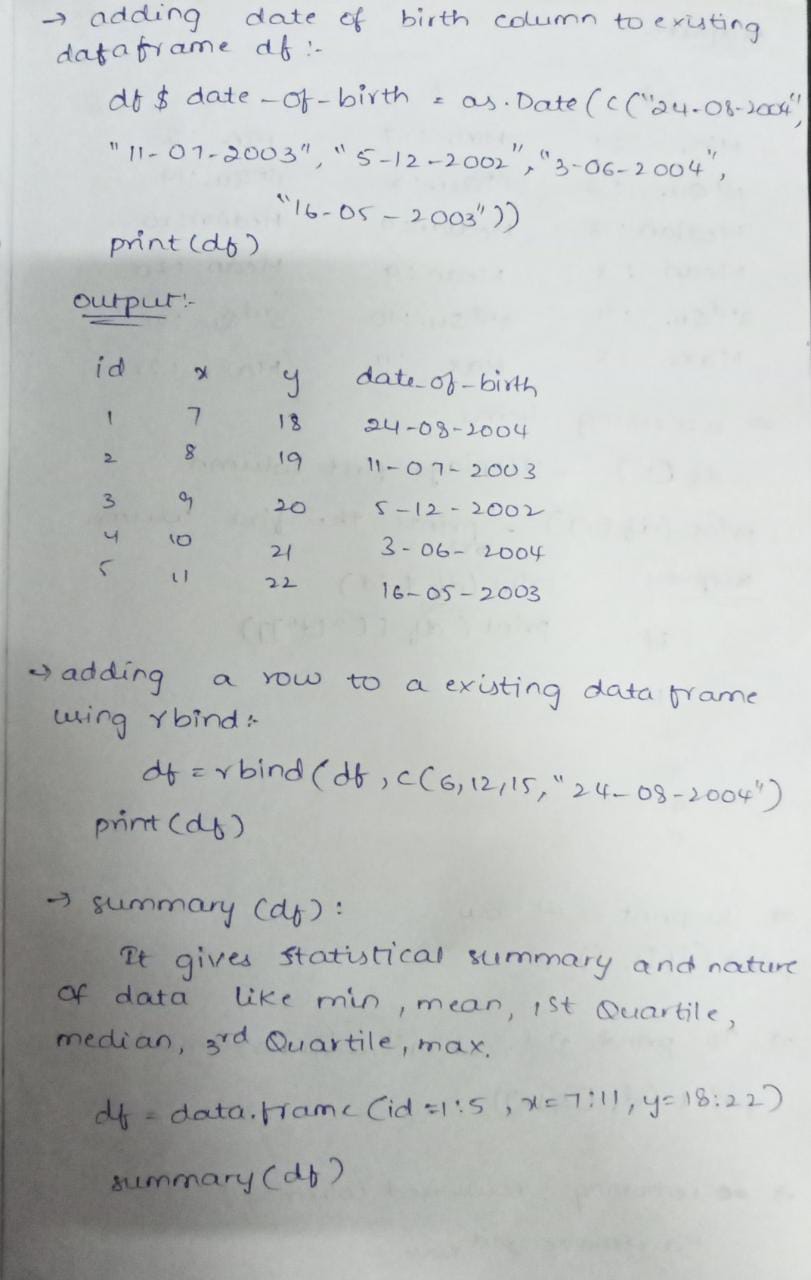 → adding date of birth column to existing
dataframe df :-
df $ date-of-birth = as.Date(c("24-08-2004",
"11-07-2003", "5-12-2002", "3-06-2004",
"16-05-2003"))
print(df)
output:-
id x y date-of-birth
1 7 18 24-08-2004
2 8 19 11-07-2003
3 9 20 5-12-2002
4 10 21 3-06-2004
5 11 22 16-05-2003
→ adding a row to a existing data frame
using rbind :-
df = rbind(df, c(6,12,15,"24-08-2004")
print(df)
→ summary (df) :
It gives statistical summary and nature
of data like min, mean, 1st Quartile,
median, 3rd Quartile, max.
df = data.frame (id=1:5, x=7:11, y=18:22)
summary(df)